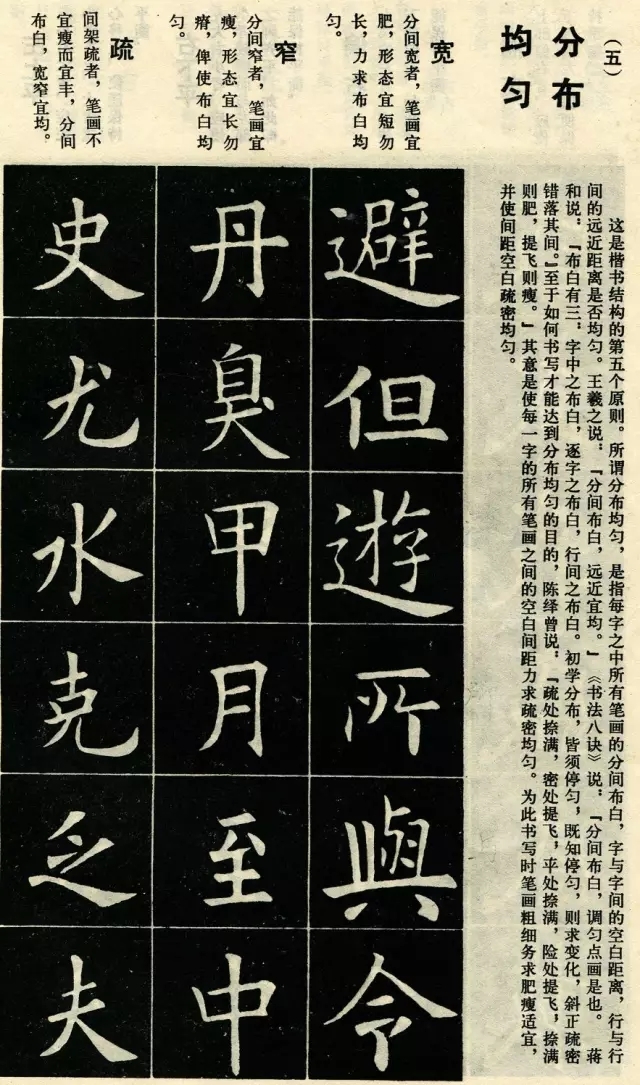 （五）
分布
均匀
这是楷书结构的第五个原则。所谓分布均匀，是指每字之中所有笔画的分间布白，字与字间的空白距离，行与行
间的远近距离是否均匀。王羲之说：『分间布白，远近宜均。』《书法八诀》说：『分间布白，调匀点画是也。蒋
和说：『布白有三：字中之布白，逐字之布白，行间之布白。初学分布，皆须停匀，既知停匀，则求变化，斜正疏密
错落其间。』至于如何书写才能达到分布均匀的目的，陈绎曾说：『疏处捺满，密处提飞，平处捺满，险处提飞，捺满
则肥，提飞则瘦。』其意是使每一字的所有笔画之间的空白间距力求疏密均匀。为此书写时笔画粗细务求肥瘦适宜，
并使间距空白疏密均匀。
宽
分间宽者，笔画宜
肥，形态宜短勿
长，力求布白均
匀。
避
但
遊
所
與
令
窄
分间窄者，笔画宜
瘦，形态宜长勿
瘠，俾使布白均
匀。
丹
臭
甲
月
至
中
疏
间架疏者，笔画不
宜瘦而宜丰，分间
布白，宽窄宜均。
史
尤
水
克
乏
夫